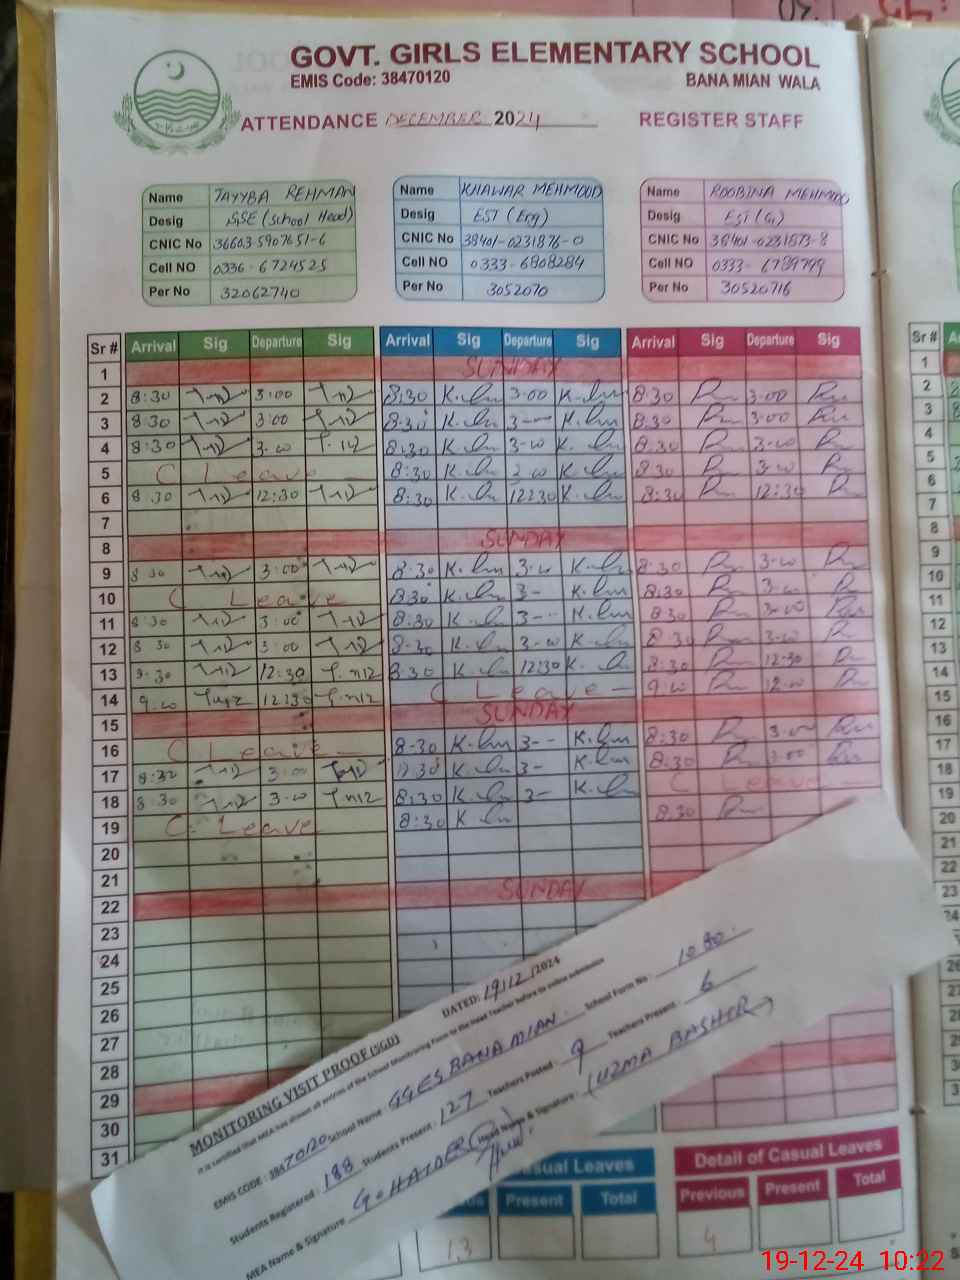 GOVT. GIRLS ELEMENTARY SCHOOL
EMIS Code: 38470120 BANA MIAN WALA
ATTENDANCE DECEMBER 2024 REGISTER STAFF
Name TAYYBA REHMAN
Desig SSE (School Head)
CNIC No 36603-5907651-6
Cell NO 0336-6724525
Per No 32062740
Name KHAWAR MEHMOOD
Desig EST (Eng)
CNIC No 38401-0231876-0
Cell NO 0333-6808284
Per No 3052070
Name ROOBINA MEHMOOD
Desig EST (G)
CNIC No 38401-0231873-8
Cell NO 0333-6789799
Per No 30520716
Sr # Arrival Sig Departure Sig Arrival Sig Departure Sig Arrival Sig Departure Sig
1 SUNDAY
2 8:30 3:00 8:30 3-00 8:30 3-00
3 8:30 3:00 8:30 3-- 8:30 3-00
4 8:30 3-00 8:30 3-00 8:30 3-00
5 C Leave 8:30 3-00 8:30 3-00
6 8:30 12:30 8:30 12:30 8:30 12:30
7
8 SUNDAY
9 8:30 3:00 8:30 3-00 8:30 3-00
10 C Leave 8:30 3- 8:30 3-00
11 8:30 3:00 8:30 3-- 8:30 3-00
12 8:30 3:00 8:30 3-00 8:30 3-00
13 8:30 12:30 8:30 12:30 8:30 12-30
14 9.00 12:30 C Leave 9.00 12-00
15 SUNDAY
16 C Leave 8-30 3-- 8:30 3-00
17 8:30 3-00 3- 8:30 3-00
18 8:30 3-00 8:30 3- C Leave
19 C Leave 8:30 8:30
20
21
22 SUNDAY
23
24
25
26
27
28
29
30
31
MONITORING VISIT PROOF (SGD) DATED: 19/12/2024
It is certified that MEA has shown all entries of the School Monitoring Form to the Head Teacher before its online submission
EMIS CODE : 38470120 School Name GGES BANA MIAN School Form No : 1080
Students Registered : 188 Students Present : 127 Teachers Posted : 9 Teachers Present : 6
MEA Name & Signature G. HAIDER Head Name & Signature : (UZMA BASHIR)
Casual Leaves
Present Total
13
Detail of Casual Leaves
Previous Present Total
4
19-12-24 10:22